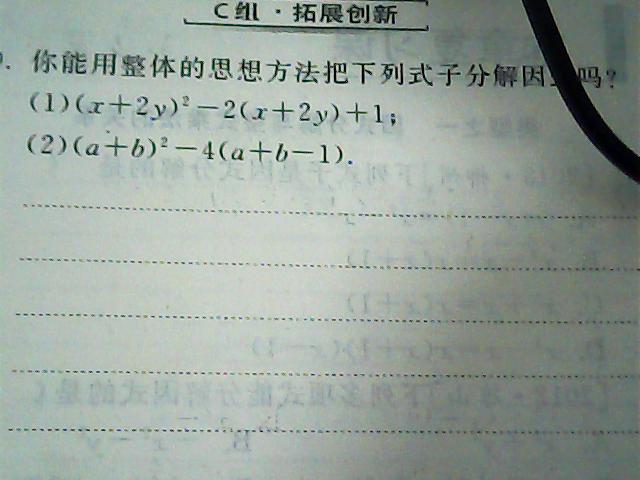 C组·拓展创新
你能用整体的思想方法把下列式子分解因 吗?
(1)(x+2y)²-2(x+2y)+1;
(2)(a+b)²-4(a+b-1).